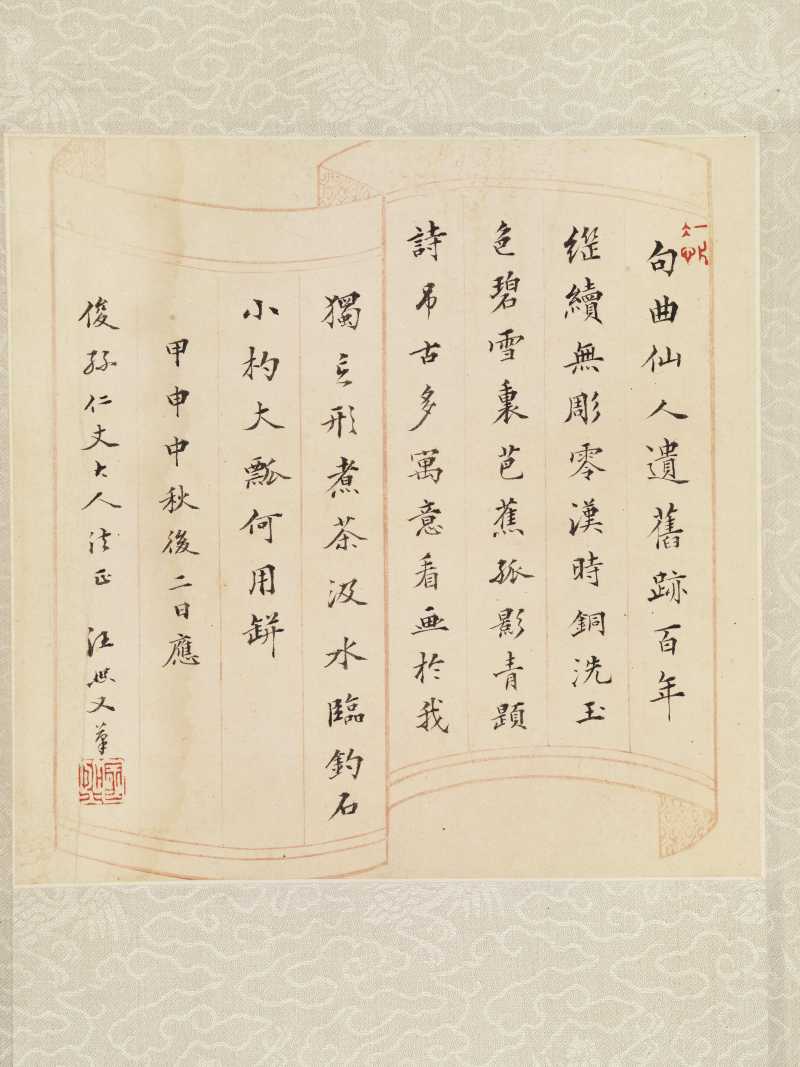 句曲仙人遺舊跡百年
繼續無彫零漢時銅洗玉
色碧雪裏芭蕉孤影青題
詩弔古多寓意看畫於我
獨立形煮茶汲水臨釣石
小杓大瓢何用缾
甲申中秋後二日應
俊孫仁丈大人法正 汪 筆